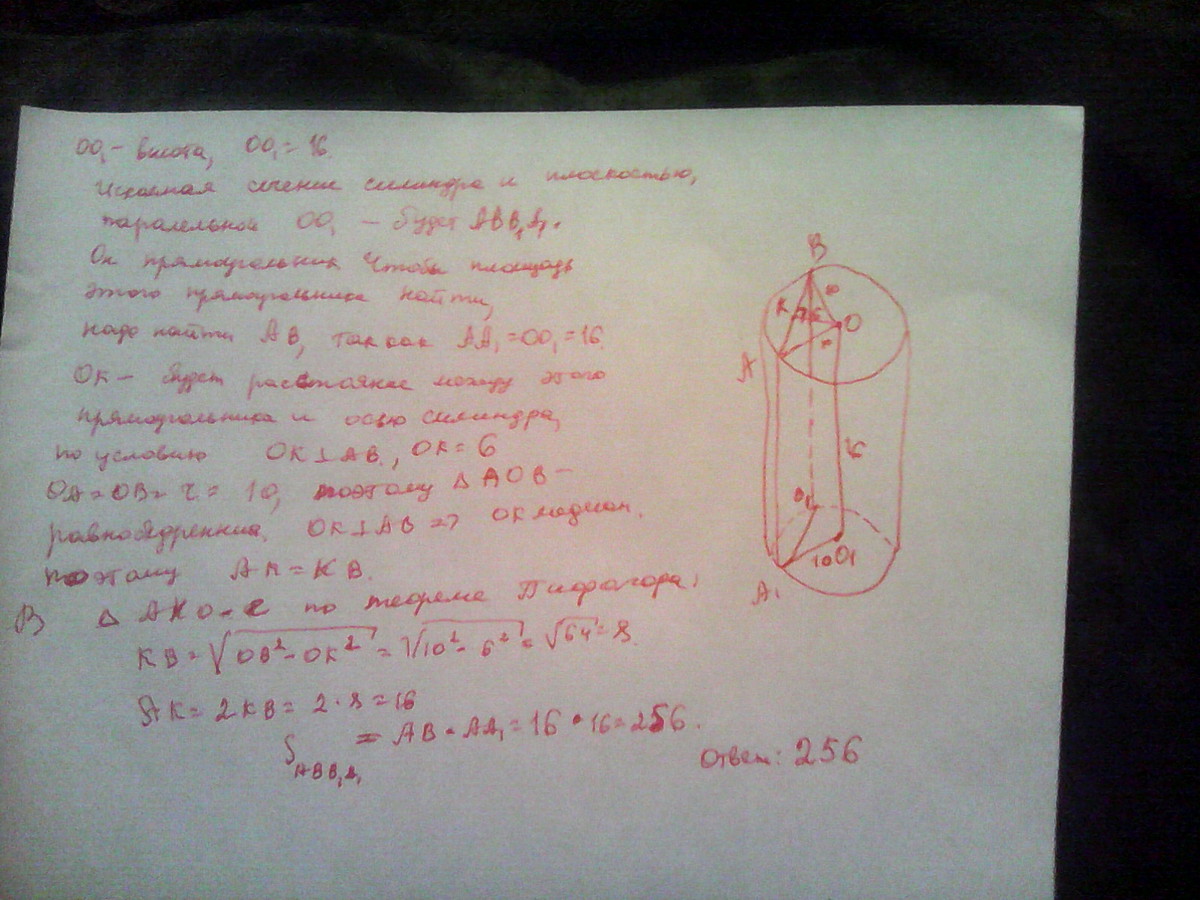 OO₁ - высота, OO₁ = 16.
Искаемая сечение силиндра и плоскостью,
паралельной OO₁ - будет ABB₁A₁.
Он прямоугольник Чтобы площадь
этого прямоугольника найти,
надо найти AB, так как AA₁ = OO₁ = 16.
OK - будет расстояние между этого
прямоугольника и осью силиндра,
по условию OK ⊥ AB, OK = 6
OA = OB = r = 10, поэтому △ AOB -
равнобедренния. OK ⊥ AB => OK медиан.
поэтому AK = KB.
В △ AKO по теореме Пифагора:
KB = √OB² - OK² = √10² - 6² = √64 = 8.
AK = 2KB = 2 · 8 = 16
S ABB₁A₁ = AB · AA₁ = 16 · 16 = 256.
Ответ: 256
B
K
O
A
16
B₁
10
O₁
A₁